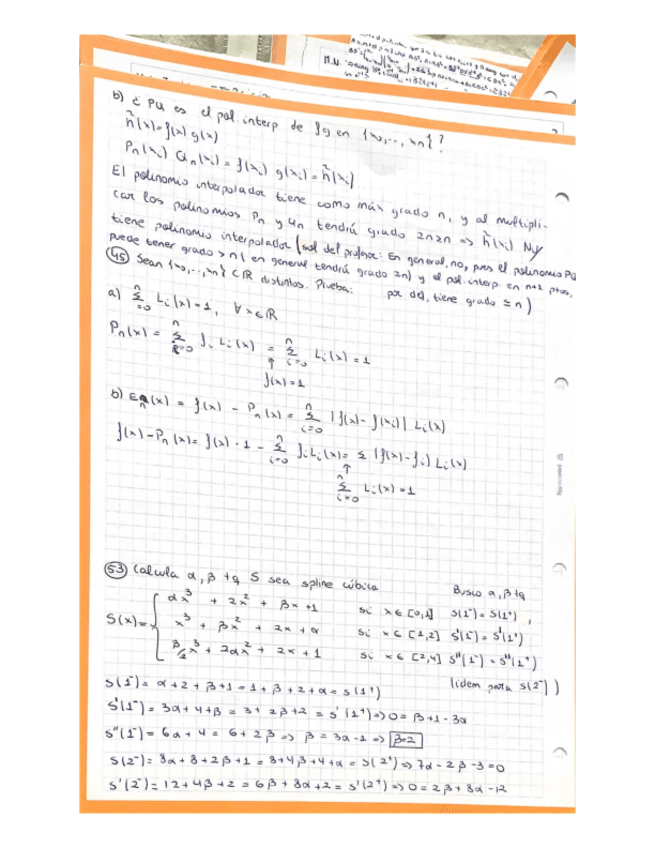 b) ¿ PQ es el pol. interp de fg en {x₀,.., xn}?
h̃(x)=f(x) g(x)
Pn(xi) Qn(xi) = f(xi) g(xi) = h̃(xi)
El polinomio interpolador tiene como máx grado n, y al multipli-
car los polinomios Pn y qn tendrá grado 2n≥n => h̃(xi) NO
tiene polinomio interpolador (sol del profesor: En general, no, pues el polinomio PQ
puede tener grado > n (en general tendrá grado 2n) y el pol. interp. en n+1 ptos,
por def, tiene grado ≤ n)
45 Sean {x₀,..,xn} C ℝ distintos. Prueba:
a) Σ Li(x)=1, ∀x∈ℝ
Pn(x) = Σ fi Li(x) = Σ Li(x) = 1
f(x)=1
b) En(x) = f(x) - Pn(x) = Σ |f(x) - f(xi)| Li(x)
f(x)-Pn(x)= f(x)·1 - Σ fi Li(x)= Σ (f(x)-fi) Li(x)
Σ Li(x)=1
53 Calcula α, β tq S sea spline cúbica
Busco α, β tq
S(x)= { αx³ + 2x² + βx +1 si x∈[0,1] S(1⁻) = S(1⁺),
x³ + βx² + 2x + α si x∈[1,2] S'(1⁻) = S'(1⁺)
β/2 x³ + 2αx² + 2x + 1 si x∈[2,4] S''(1⁻) = S''(1⁺)
(idem para S(2⁻))
S(1⁻) = α+2 + β+1 = 1 + β + 2 + α = S(1⁺)
S'(1⁻) = 3α + 4 + β = 3 + 2β + 2 = S'(1⁺) => 0 = β+1-3α
S''(1⁻) = 6α + 4 = 6 + 2β => β = 3α - 1 => β=2
S(2⁻) = 8α + 8 + 2β + 1 = 8+4β+4+α = S(2⁺) => 7α - 2β - 3 = 0
S'(2⁻) = 12 + 4β + 2 = 6β + 8α + 2 = S'(2⁺) => 0 = 2β + 8α - 12